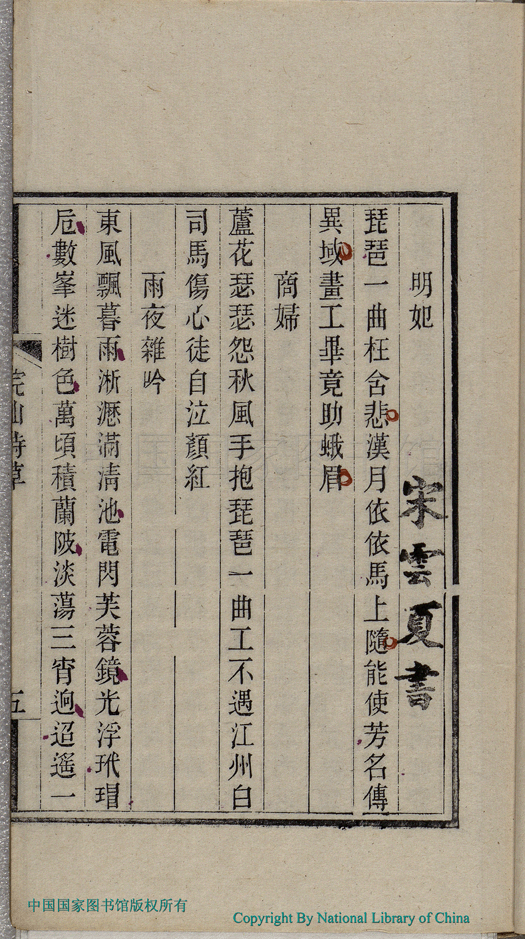 明妃
宋雲夏書
琵琶一曲枉含悲漢月依依馬上隨能使芳名傳
異域畫工畢竟助蛾眉
商婦
蘆花瑟瑟怨秋風手抱琵琶一曲工不遇江州白
司馬傷心徒自泣顏紅
雨夜雜吟
東風飄暮雨淅瀝滿清池電閃芙蓉鏡光浮玳瑁
卮數峯迷樹色萬頃積蘭陂淡蕩三宵迥迢遥一
山詩草
五
中国国家图书馆版权所有
Copyright By National Library of China